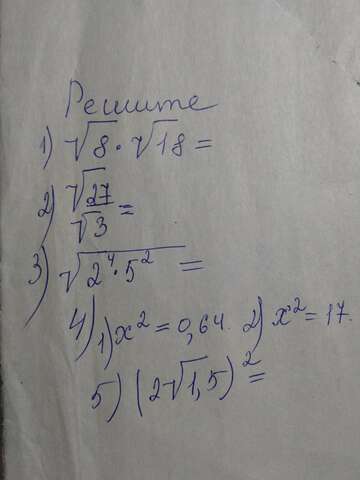 Решите
1) √8 · √18 =
2) √27 / √3 =
3) √(2⁴ · 5²) =
4) 1) x² = 0,64. 2) x² = 17.
5) (2√1,5)² =